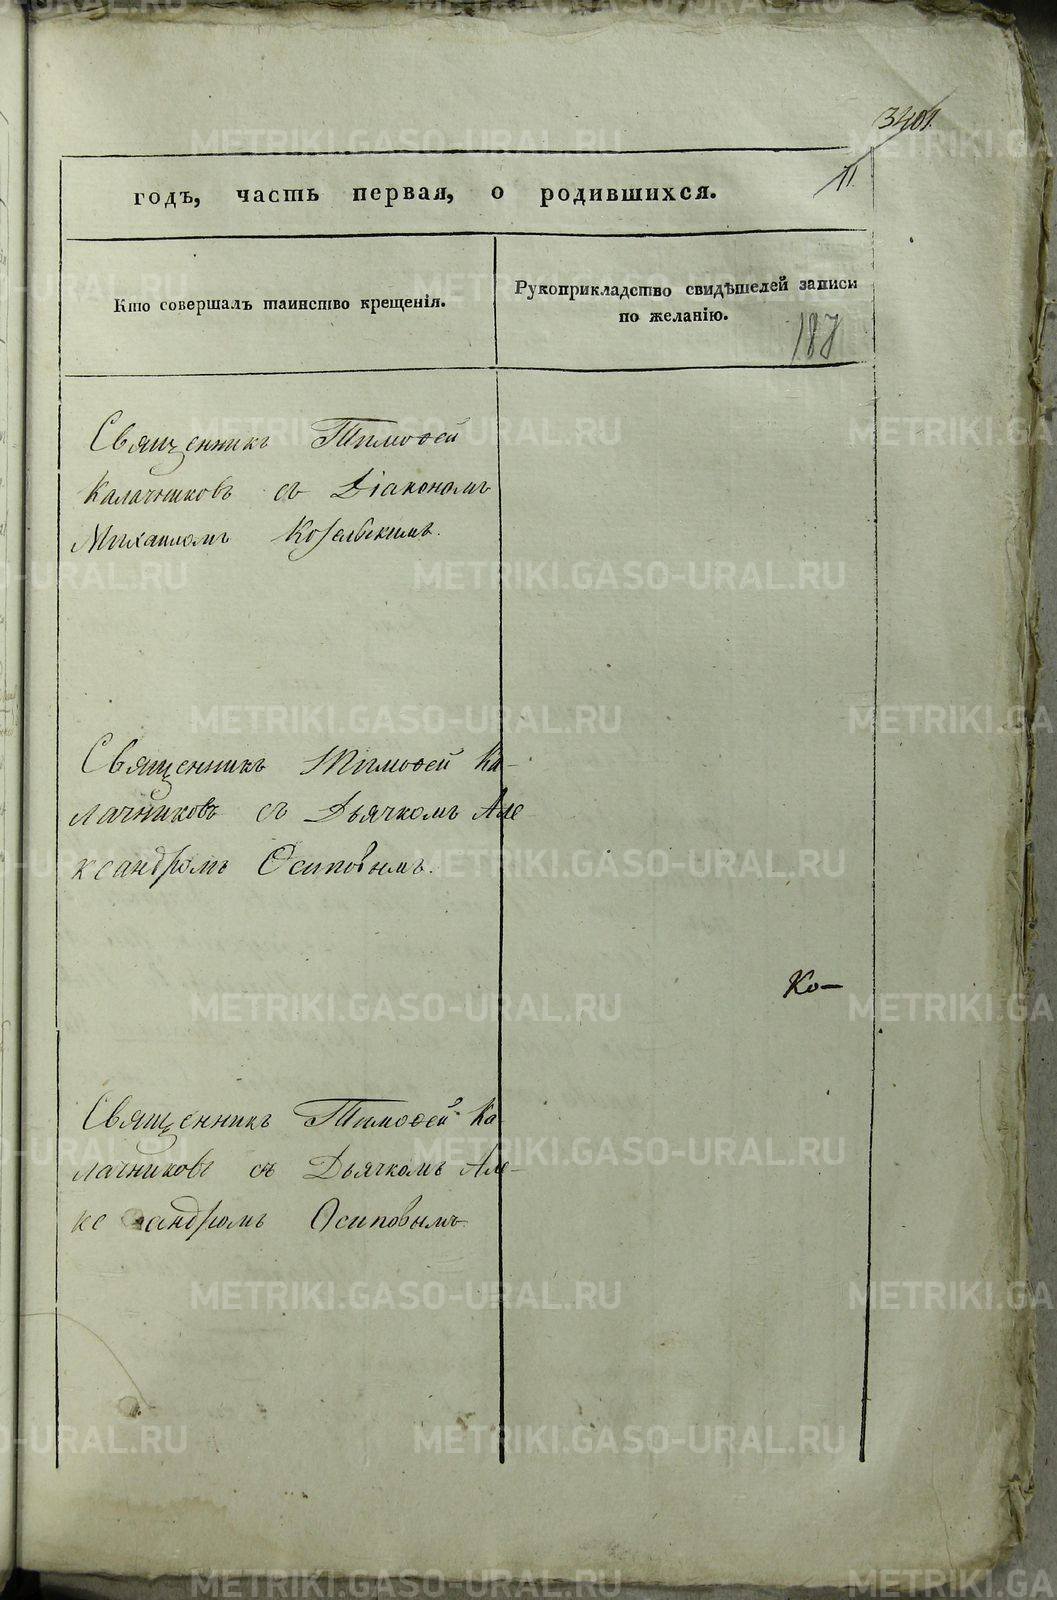 11.
годъ, часть первая, о родившихся.
Кто совершалъ таинство крещенія.
Рукоприкладство свидѣтелей записи
по желанію.
187
Священникъ Тимофей
Калачниковъ съ Діакономъ
Михаиломъ Козельскимъ.
Священникъ Тимофей Ка-
лачниковъ съ Дьячкомъ Але
ксандромъ Осиповымъ.
Ко-
Священникъ Тимофей Ка-
лачниковъ съ Дьячкомъ Але-
ксандромъ Осиповымъ.
METRIKI.GASO-URAL.RU